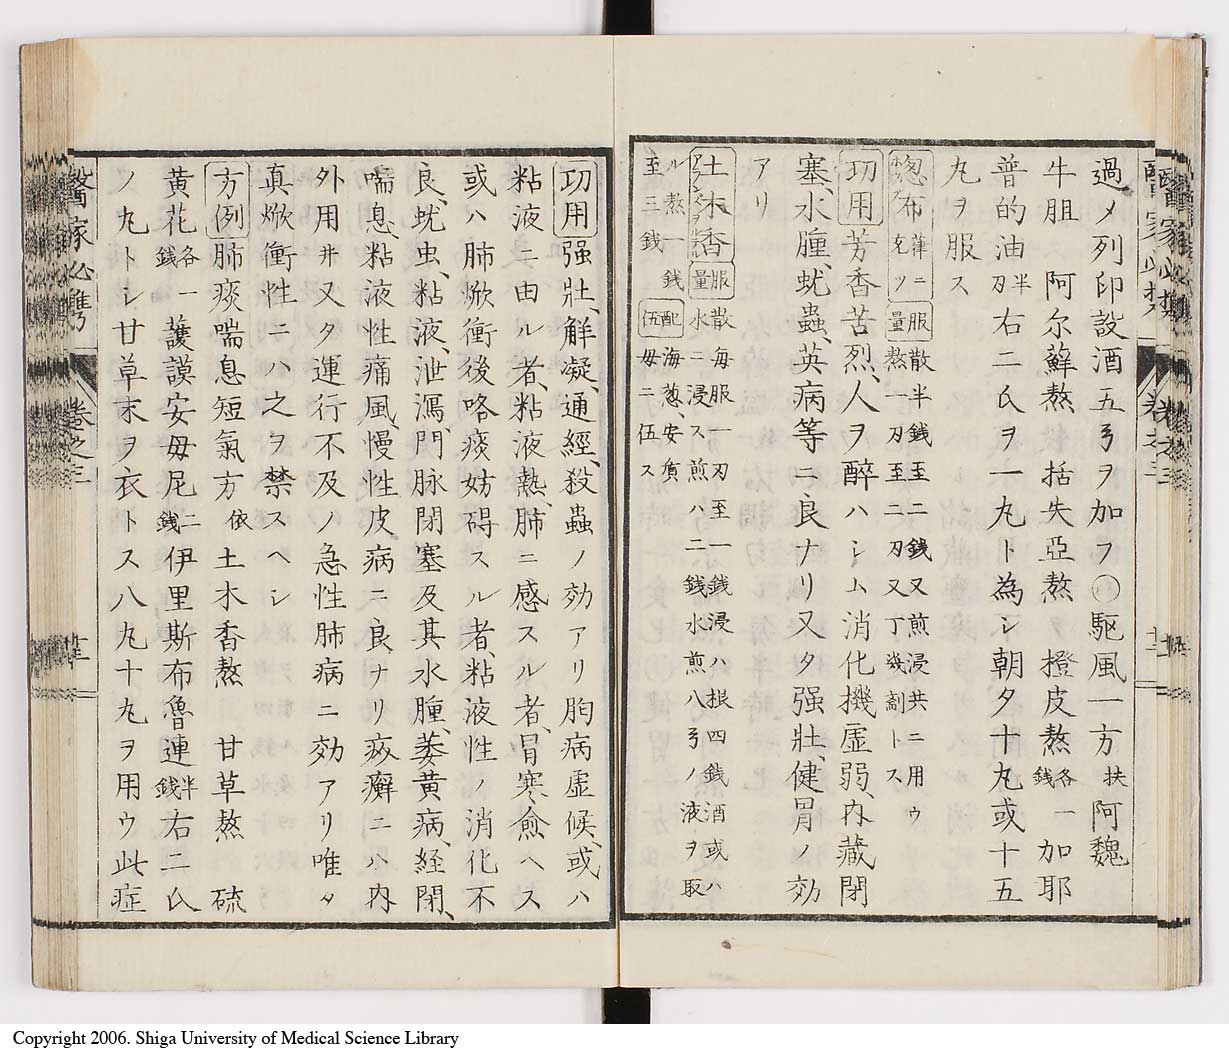 過メ列印設酒五弓ヲ加フ○驅風一方扶阿魏
牛胆 阿尓蘇熬 括失亞熬 橙皮熬各一錢 加耶
普的油半刃右二氏ヲ一丸ト為シ朝夕十丸或十五
丸ヲ服ス
忽布葎ニ充ツ 服量散半錢至二錢又煎浸共ニ用ウ
熬一刃至二刃又丁幾剤トス
功用芳香苦烈、人ヲ醉ハシム消化機虚弱、内藏閉
塞、水腫、蚘蟲、英病等ニ良ナリ又タ強壯、健胃ノ効
アリ
土木香 服量散每服一刃至一錢浸ハ根四錢酒或ハ
水ニ浸ス煎ハ二錢水煎八弓ノ液ヲ取
ル熬一錢 配伍海葱、安質
至三錢 母ニ伍ス
功用強壯、解凝、通經、殺蟲ノ効アリ胸病虚候、或ハ
粘液ニ由ル者、粘液熱、肺ニ感スル者、冒寒愈ヘス
或ハ肺焮衝後咯痰妨碍スル者、粘液性ノ消化不
良、蚘虫、粘液、泄瀉門脉閉塞及其水腫、萎黄病、經閉、
喘息、粘液性痛風、慢性皮病ニ良ナリ疥癬ニハ内
外用井又タ運行不及ノ急性肺病ニ効アリ唯タ
真焮衝性ニハ之ヲ禁スヘシ
方例肺痰喘息短氣方依土木香熬 甘草熬 硫
黄花各一錢護謨安母尼二錢伊里斯布魯連半錢右二氏
ノ丸トシ甘草末ヲ衣トス八丸十丸ヲ用ウ此症
醫家必攜
卷之三
Copyright 2006. Shiga University of Medical Science Library